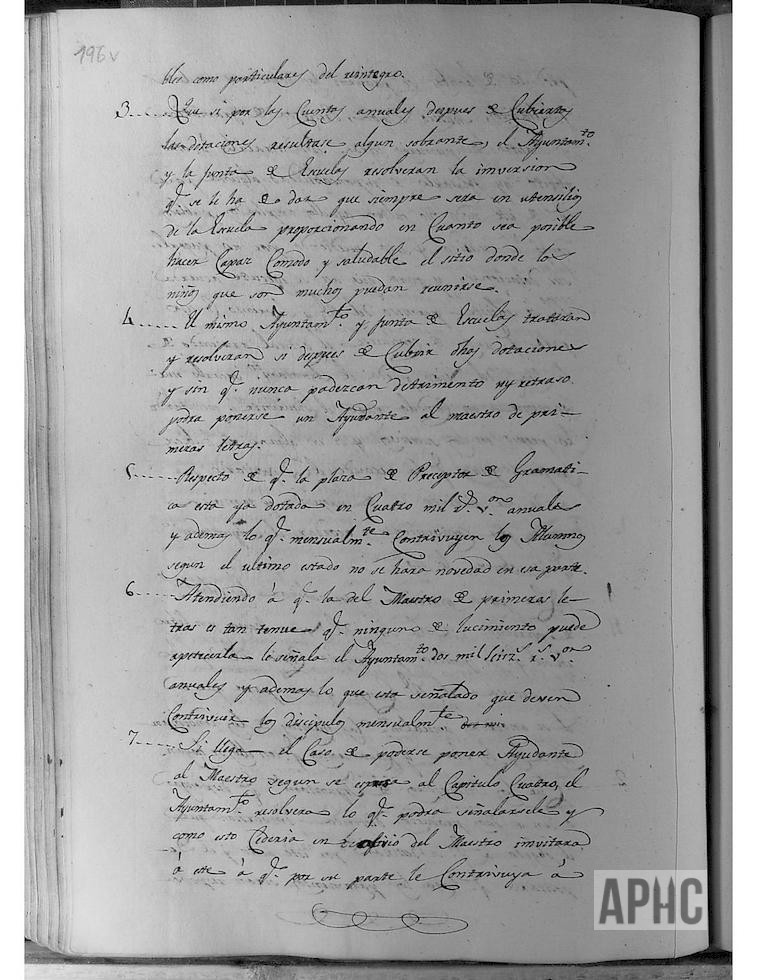 196v
bles como particulares del reintegro.
3.... Que si por las Cuentas anuales despues de Cubiertas
las dotaciones resultase algun sobrante, el Ayuntam.to
y la Junta de Escuelas resolveran la inversion
q.e se le ha de dar que siempre sera en utensilios
de la Escuela proporcionando en Cuanto sea posible
hacer Capaz Comodo y saludable el sitio donde los
niños que son muchos puedan reunirse.
4..... El mismo Ayuntam.to y Junta de Escuelas trataran
y resolveran si depues de Cubrir dhas dotaciones
y sin q.e nunca padezcan detrimento ny retraso
podra ponerse un Ayudante al maestro de pri-
meras letras.
5..... Respecto de q.e la plaza de Preceptor de Gramati-
ca esta ya dotada en Cuatro mil r.s v.on anuales
y ademas lo q.e mensualm.te Contrivuyen los Alumnos
segun el ultimo estado no se hara novedad en esa parte.
6..... Atendiendo á q.e la del Maestro de primeras le-
tras es tan tenue q.e ninguno de lucimiento puede
apetecerla le señala el Ayuntam.to dos mil r.s v.on
anuales y ademas lo que esta señalado que deven
Contrivuir los discipulos mensualm.te
7..... Si llega el Caso de poderse poner Ayudante
al Maestro segun se espresa al Capitulo Cuatro, el
Ayuntam.to resolvera lo q.e podra señalarsele y
como esto Cederia en beneficio del Maestro invitara
á este á q.e por su parte le Contrivuya á
APHC